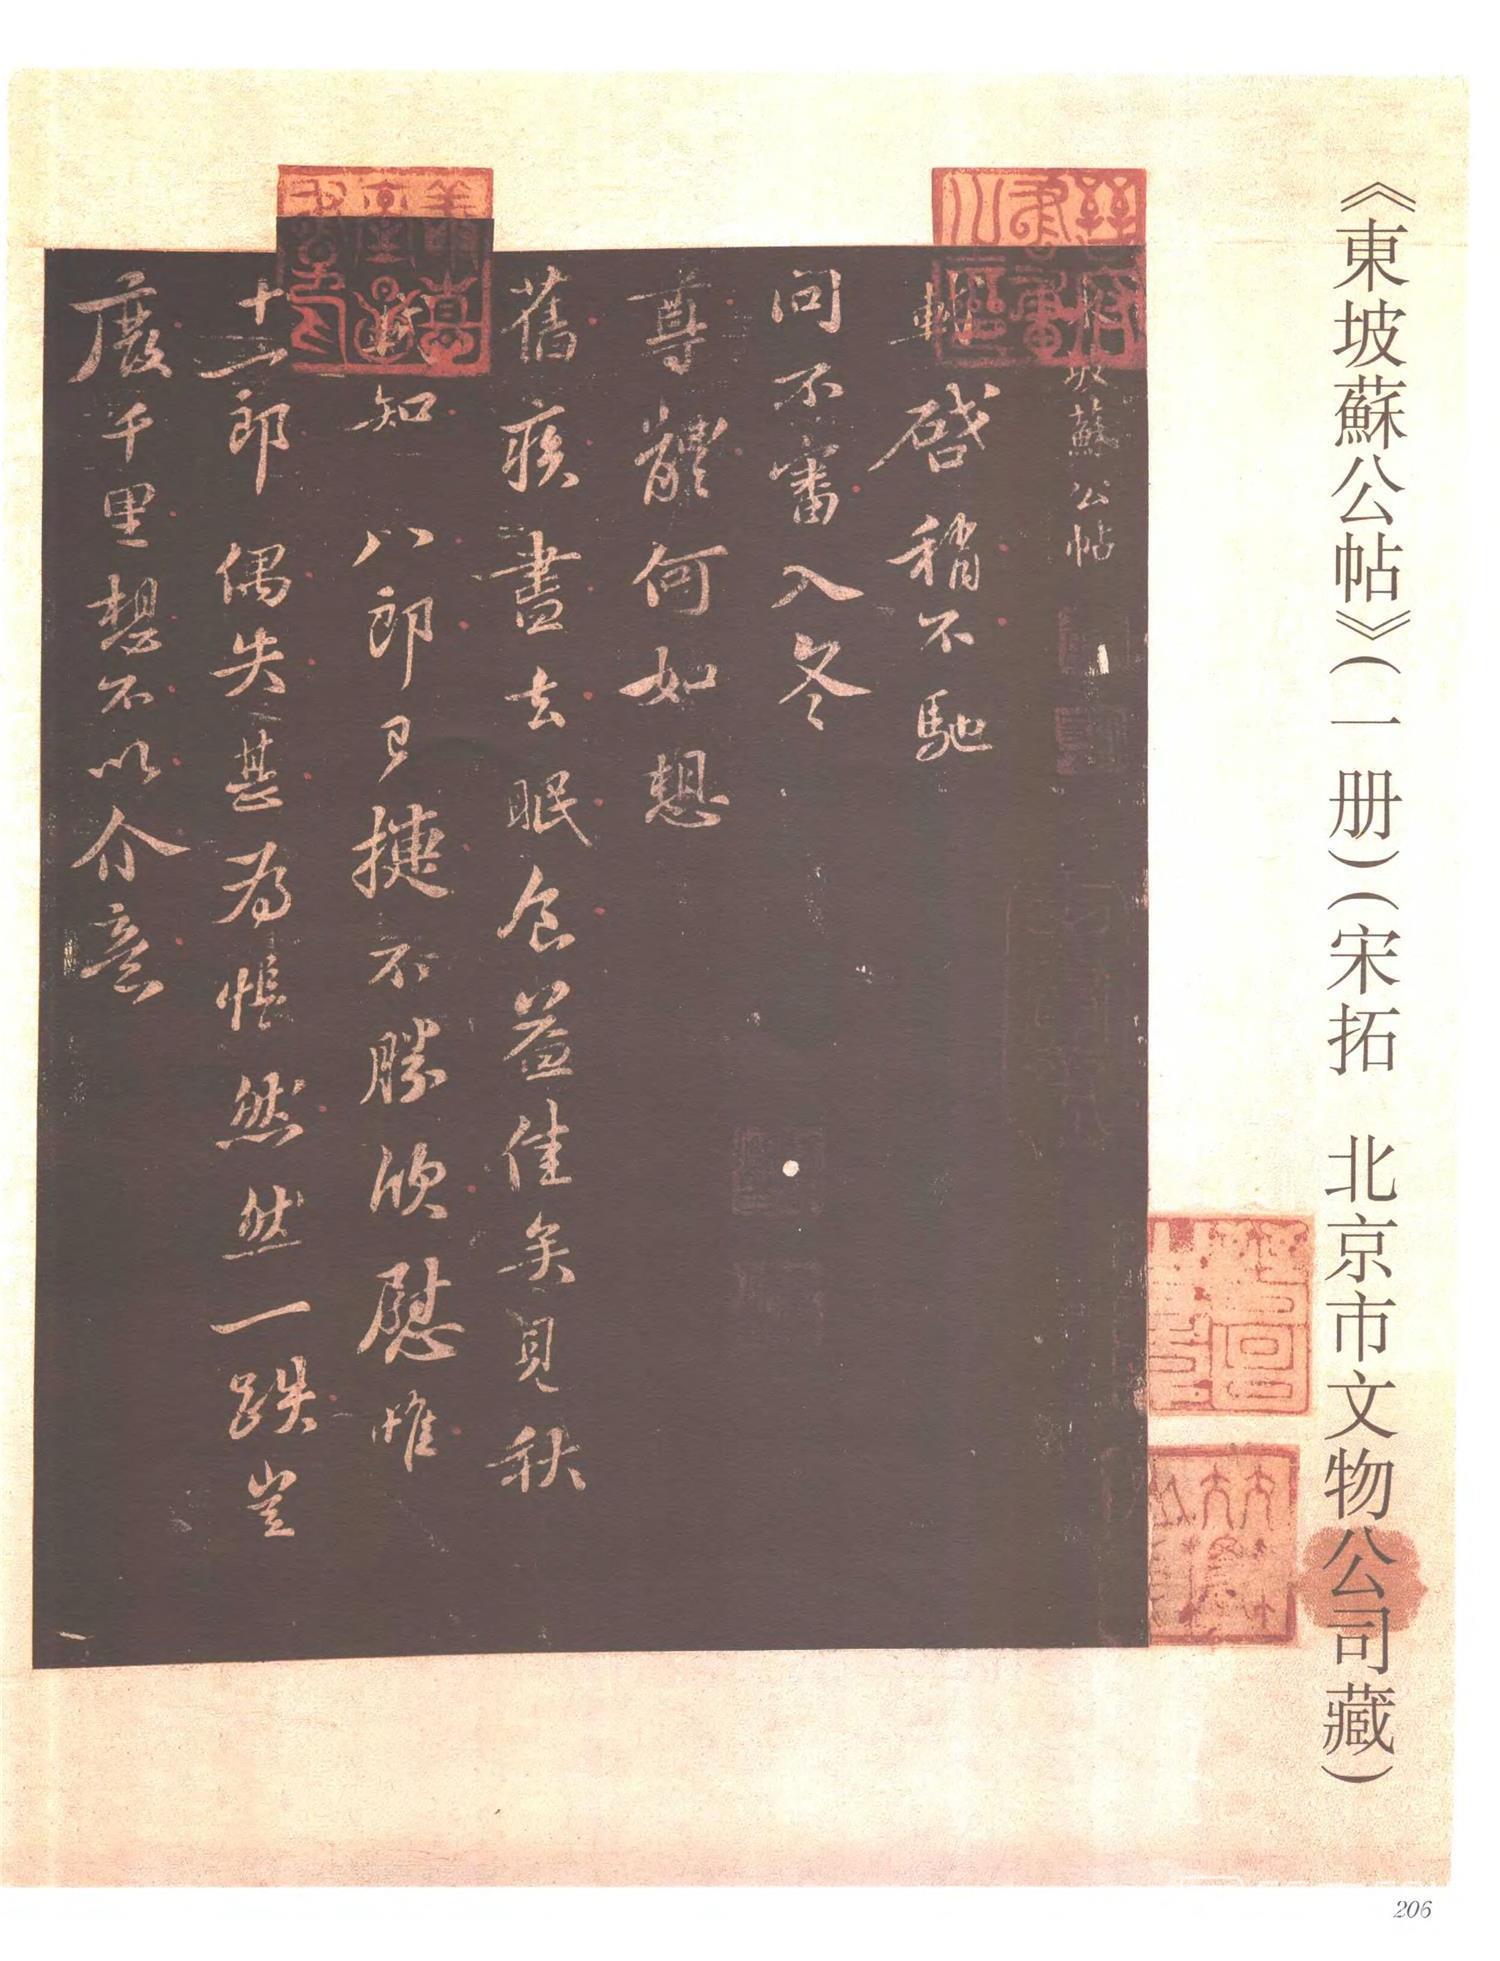 《東坡蘇公帖》(一册)(宋拓 北京市文物公司藏)
坡蘇公帖
軾啓稍不馳
問不審入冬
尊體何如想
舊疾盡去眠食益佳矣見秋
試知八郎已捷不勝欣慰惟
十一郎偶失甚為悵然然一跌豈
廢千里想不以介意
206